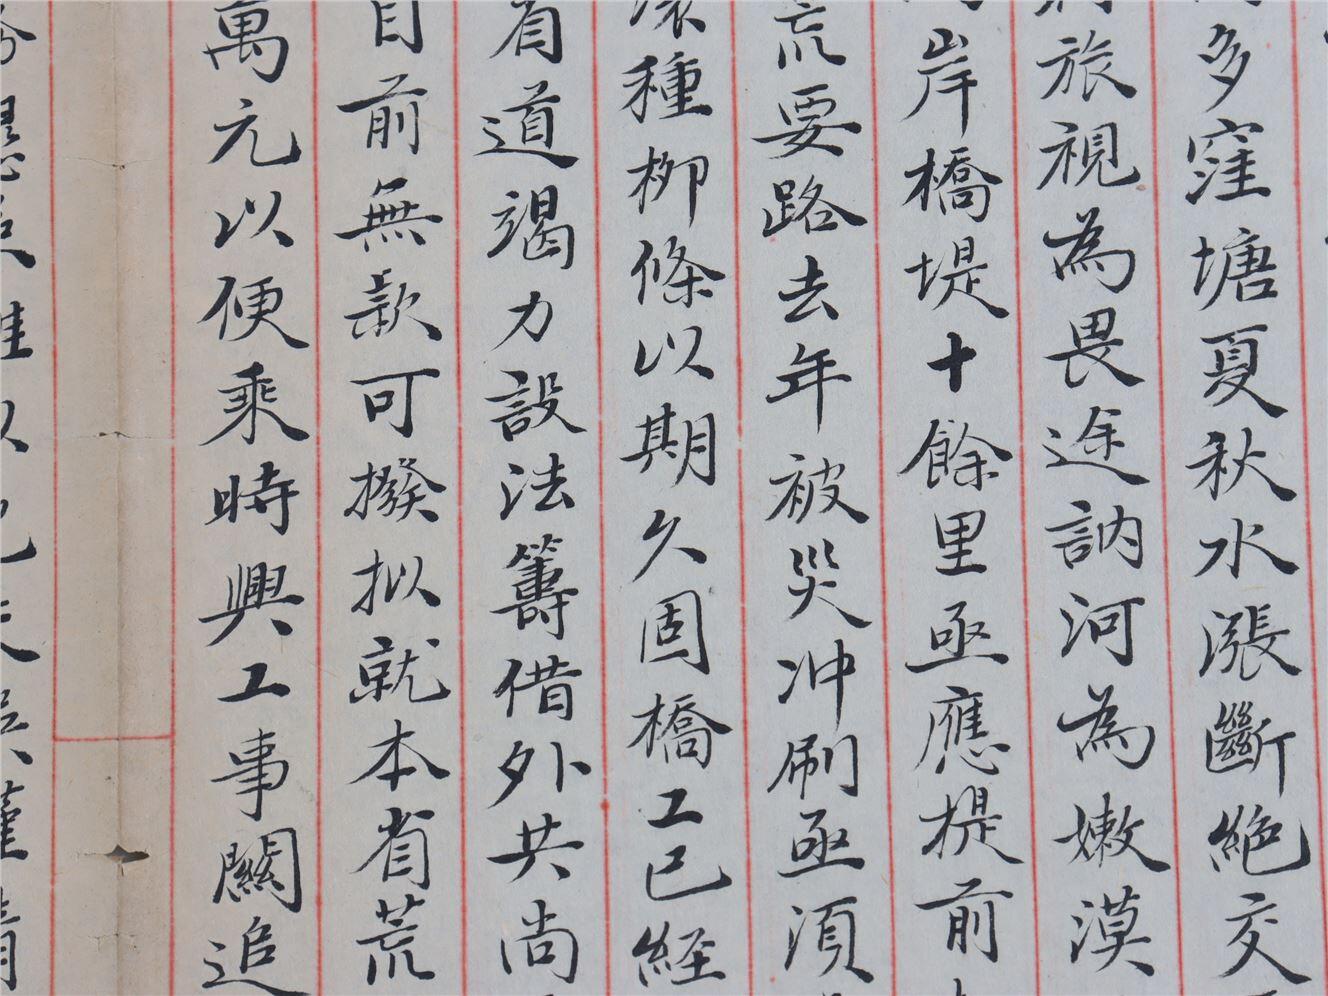 多窪塘夏秋水漲斷絕交
旅視為畏途訥河為嫩漠
岸橋堤十餘里亟應提前
荒要路去年被災冲刷亟須
種柳條以期久固橋工已經
省道竭力設法籌借外共尚
目前無款可撥拟就本省荒
萬元以便乘時興工事關追